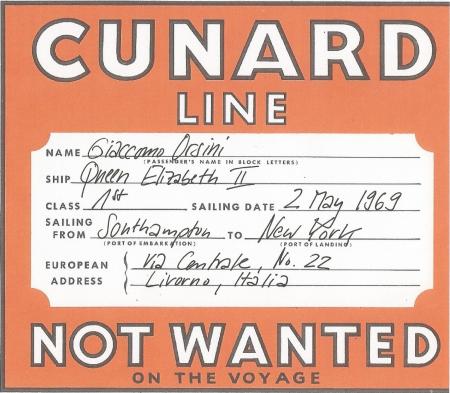 CUNARD
LINE
NAME Giaccomo Orsini
(PASSENGER'S NAME IN BLOCK LETTERS)
SHIP Queen Elizabeth II
CLASS 1st SAILING DATE 2 May 1969
SAILING FROM Southampton TO New York
(PORT OF EMBARKATION) (PORT OF LANDING)
EUROPEAN Via Centrale, No. 22
ADDRESS Livorno, Italia
NOT WANTED
ON THE VOYAGE